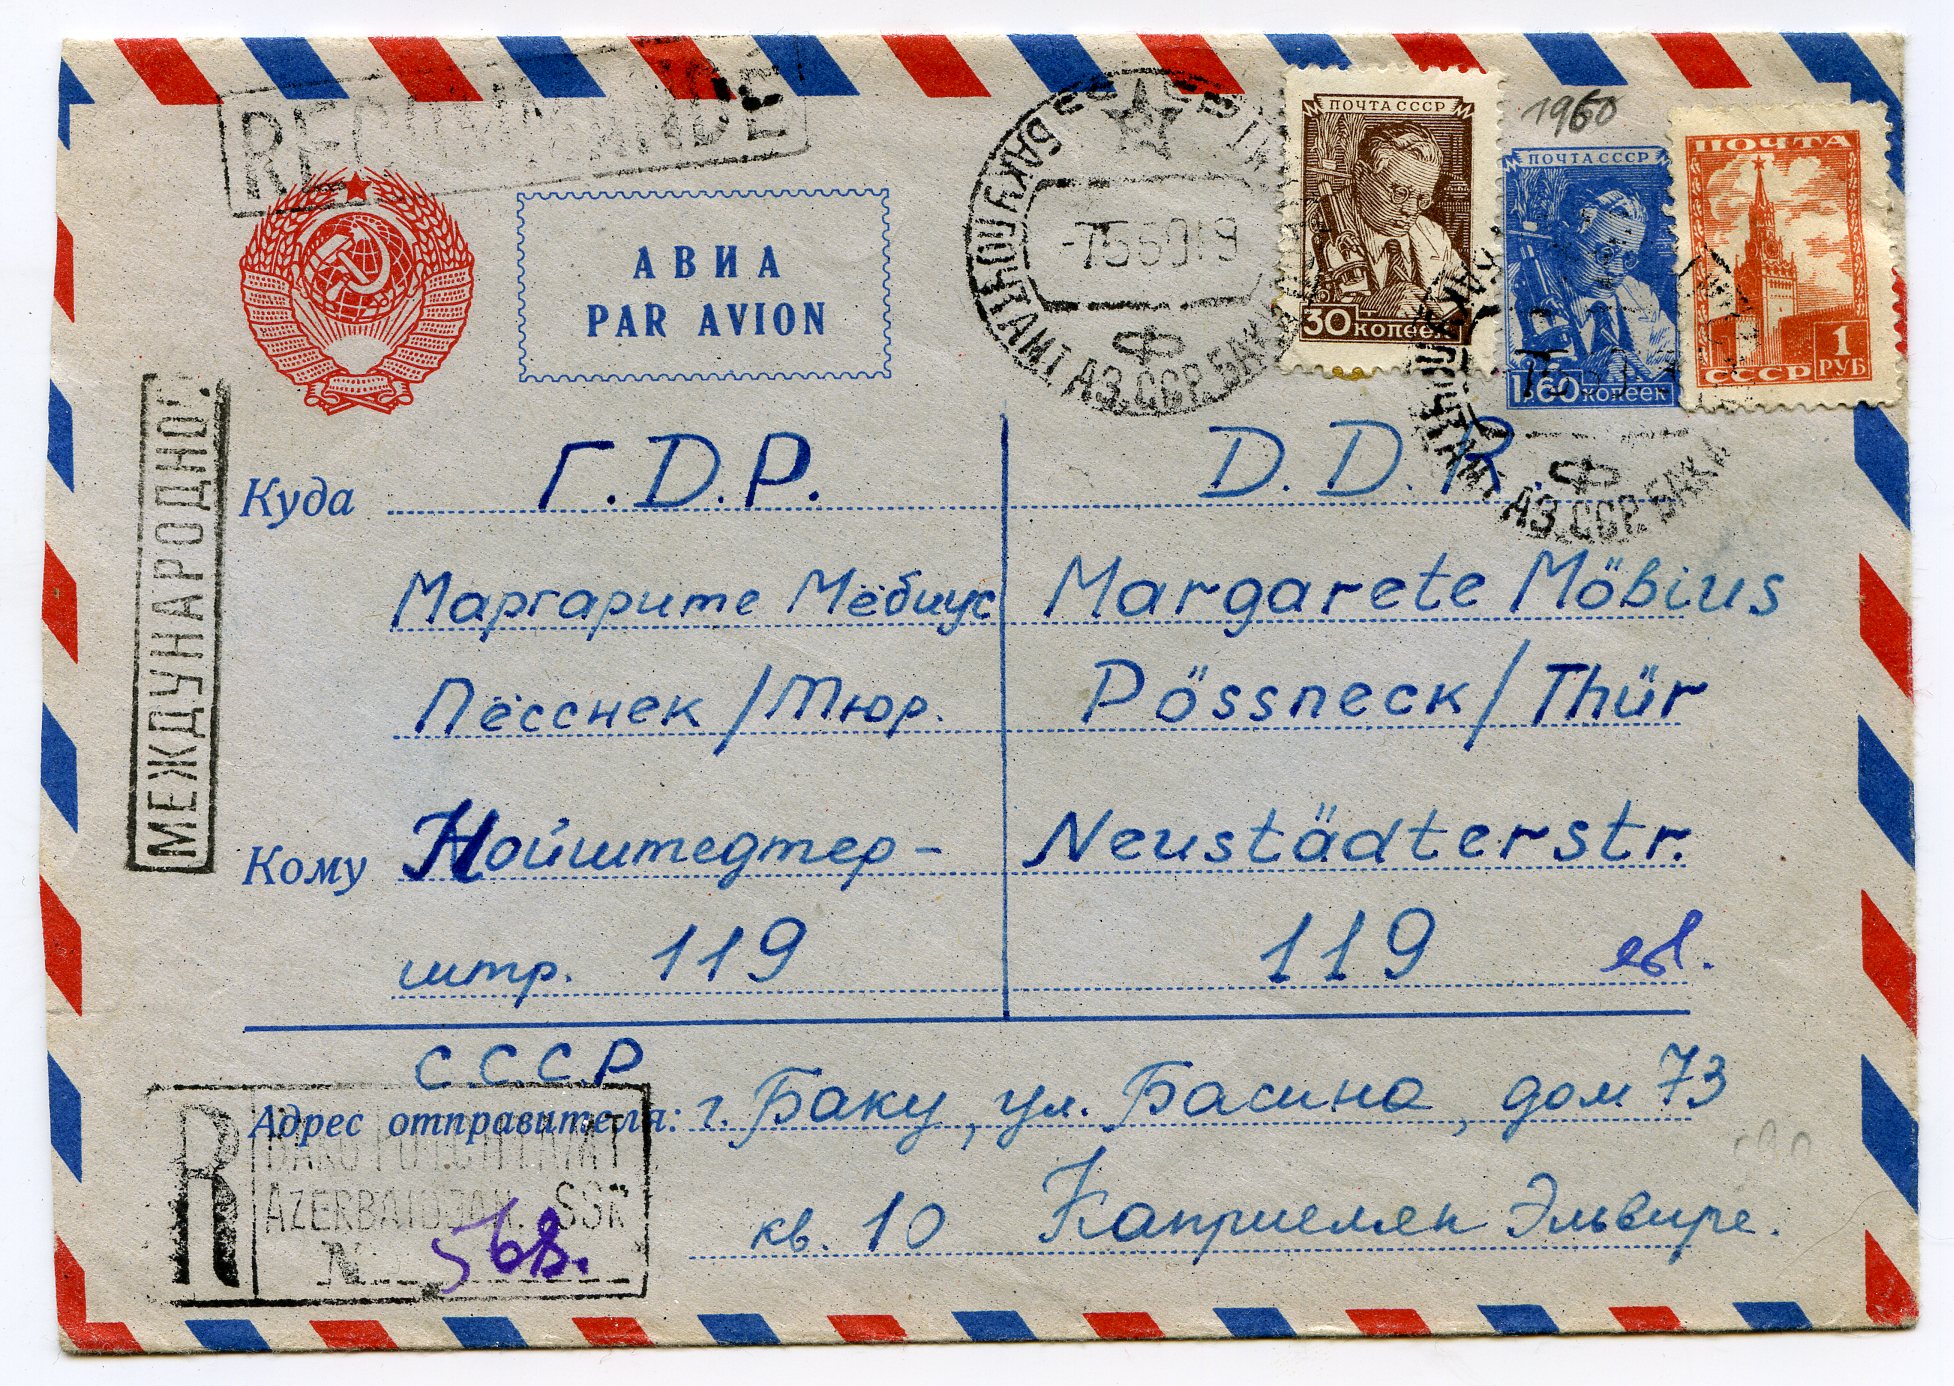 RECOMMANDE
1960
ПОЧТА СССР
30 КОПЕЕК
ПОЧТА СССР
1р.60 КОПЕЕК
ПОЧТА
1 РУБ
СССР
АВИА
PAR AVION
БАКУ ПОЧТАМТ АЗ.ССР. БАКУ
-756019
АЗ.ССР. БАКИ
МЕЖДУНАРОДНОЕ
Куда Г.Д.Р. D.D.R.
Маргарите Мёбиус Margarete Möbius
Пёсснек/Тюр. Pössneck/Thür
Кому Нойштедтер- Neustädterstr.
штр. 119 119
С.С.С.Р
Адрес отправителя: г. Баку, ул. Басина, дом 73
кв. 10 Каприелян Эльвире.
R
BAKU POTCHTAMT
AZERBAIDJAN. SSR
N 568.